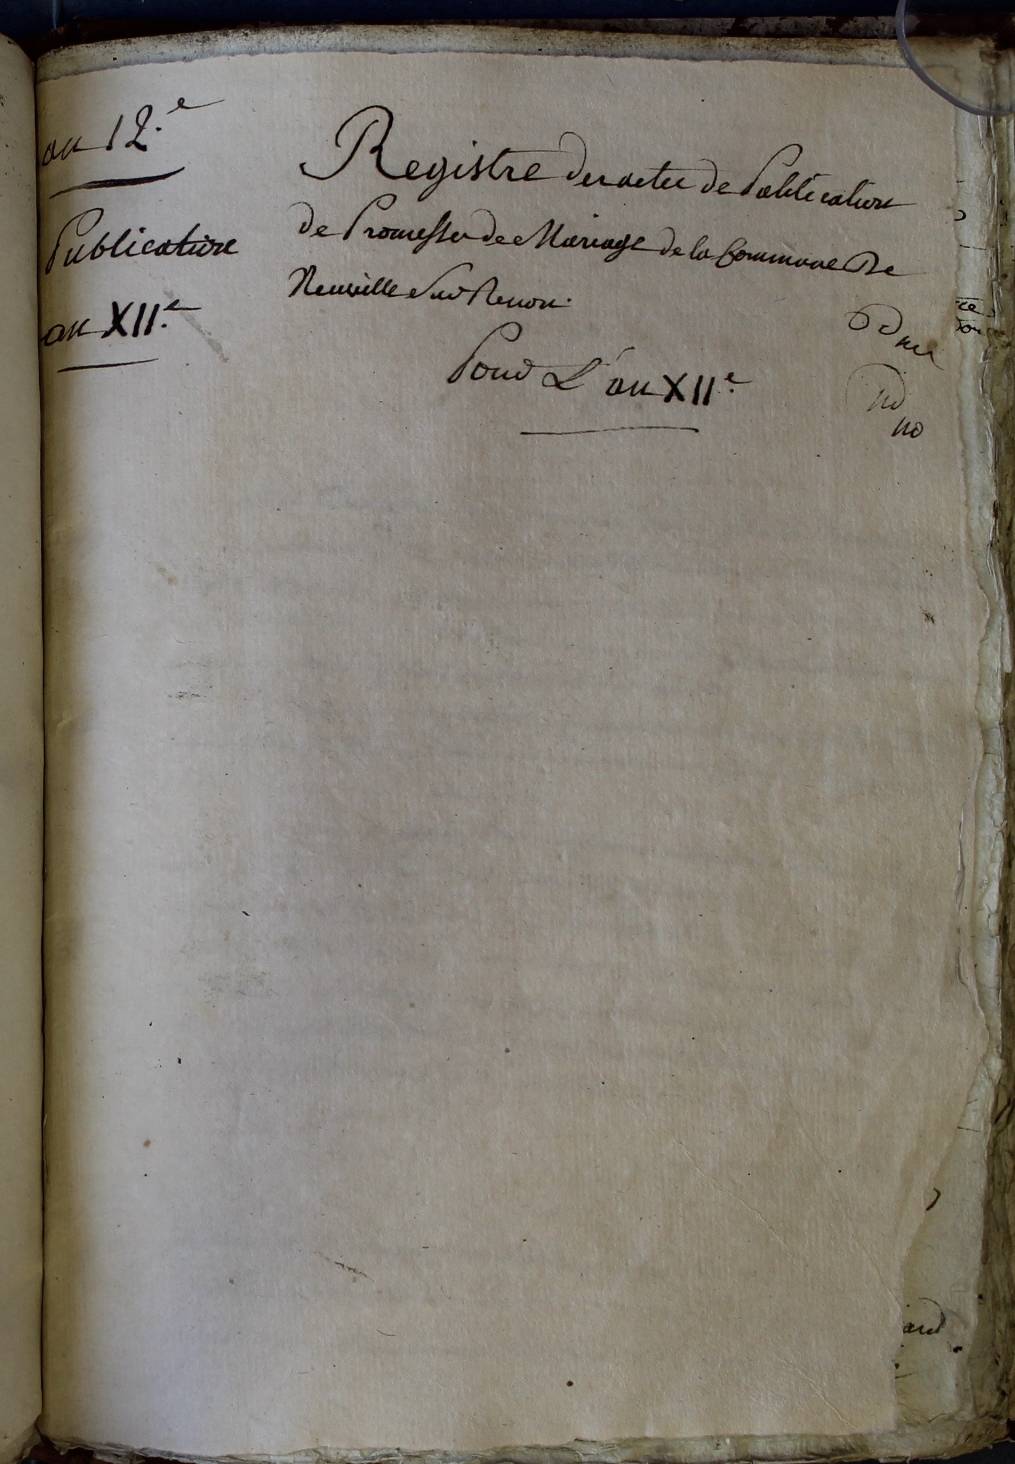 an 12.e
Publication
an XII.e
Registre des actes de Publication
de Promesses de Mariage de la Commune De
Neuville sur Renon.
Pour L'an XII.e